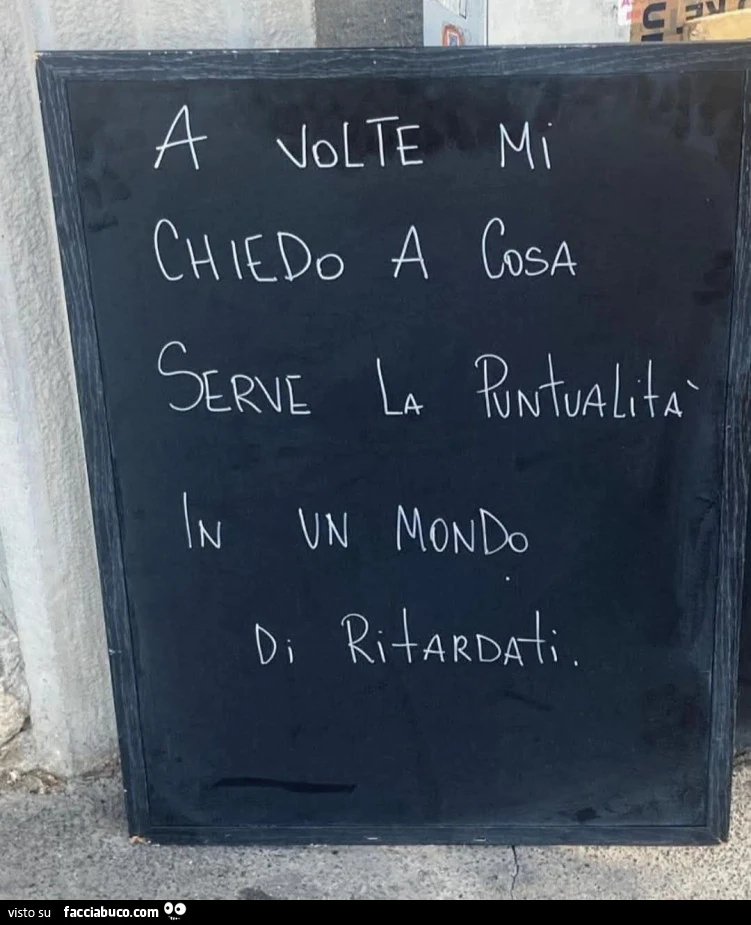 A VOLTE Mi
CHIEDO A COSA
SERVE LA PUNTUALitÀ
IN UN MONDO
Di RitARDAti.
visto su facciabuco.com